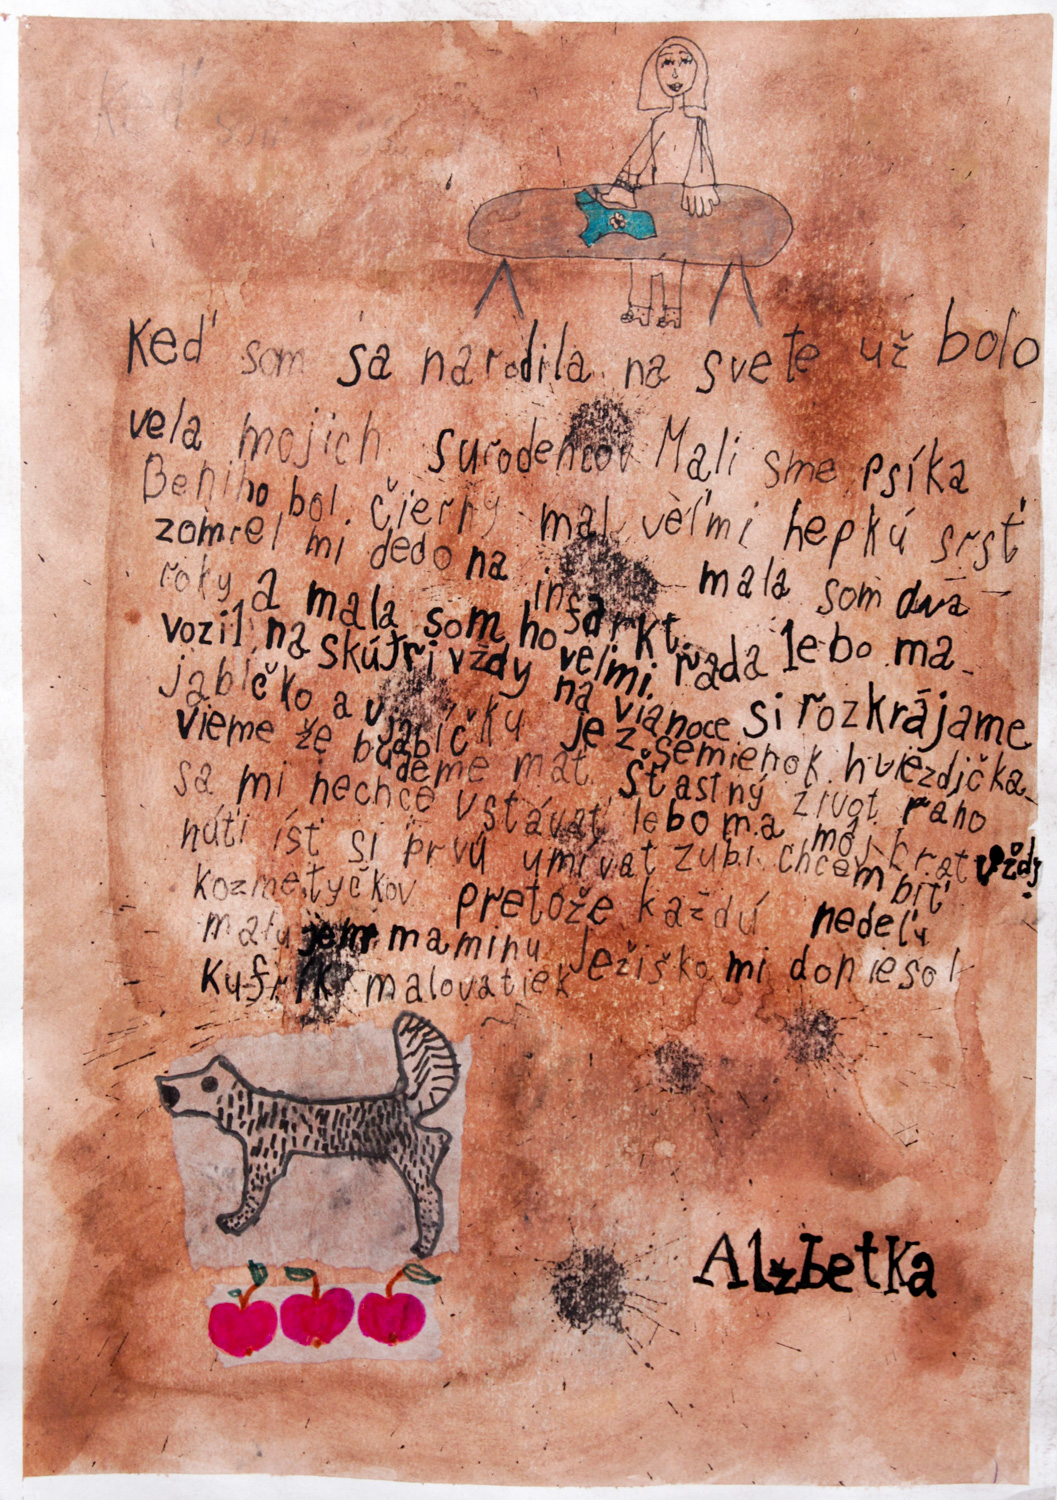 Keď som
Keď som sa narodila na svete už bolo
vela mojich surodencov Mali sme psíka
Beniho bol čierny mal veľmi hepkú srsť
zomrel mi dedo na insarkt. mala som dva
roky a mala som ho velmi rada lebo ma
vozil na skútri vždy na vianoce si rozkrájame
jablčko a v jablčku je zšemienok hviezdička
vieme že budeme mať šťastný život rano
sa mi nechce vstávať lebo ma môj brat vždy
núti ísť si prvú umívat zubi chcem biť
kozmetyčkov pretože každú nedeľu
malujem maminu Ježiško mi doniesol
Kufrík malovatiek
Alžbetka